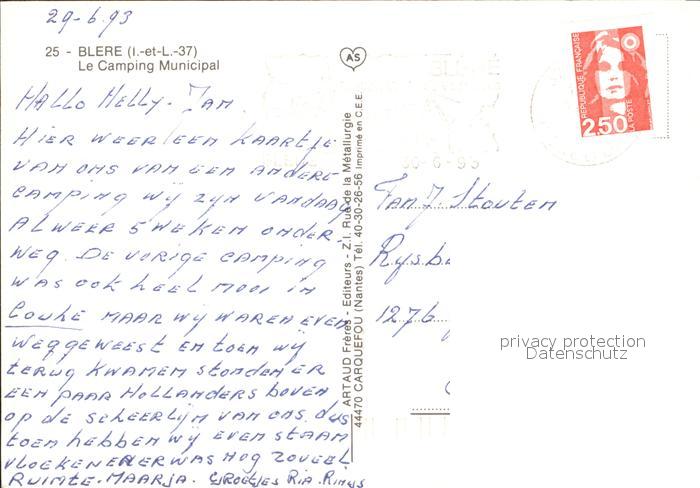 29-6.93
25 - BLERE (I.-et-L.-37)
Le Camping Municipal
HALLO NELLY - JAN.
HIER WEER EEN KAARTJE
VAN ONS VAN EEN ANDERE
CAMPING WY ZYN VANDAAG
ALWEER 5 WEKEN ONDER.
WEG. DE VORIGE CAMPING
WAS OOK HEEL MOOI IN
Couhe MAAR WY WAREN EVEN
WEGGEWEEST EN TOEN WY
TERUG KWAMEN STONDEN ER
EEN PAAR HOLLANDERS BOVEN
OP DE SCHEERLIJN VAN ONS DUS
TOEN HEBBEN WY EVEN STAAN
VLOEKEN EN ER WAS NOG ZOVEEL
RUIMTE. MAARJA. GROETJES RIA.
AS
ARTAUD Frères - Editeurs - Z.I. Rue de la Métallurgie
44470 CARQUEFOU (Nantes) Tél. 40-30-26-56 Imprimé en C.E.E.
BLERE
30-6-93
REPUBLIQUE FRANÇAISE
2,50
LA POSTE
Fam J. Stouten
Rysb
1276
privacy protection
Datenschutz